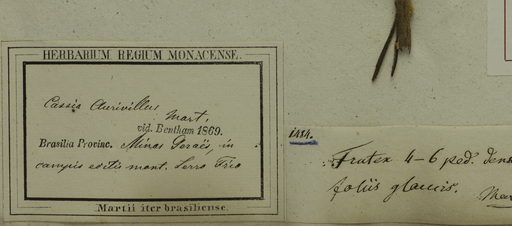 HERBARIUM REGIUM MONACENSE.
Cassia Aurivillus
Mart,
vid. Bentham 1869.
Brasilia Provinc. Minas Geraës, in
campis editis mont. Serro Frio
Martii iter brasiliense.
1414.
Frutex 4-6 ped. dens
foliis glaucis.